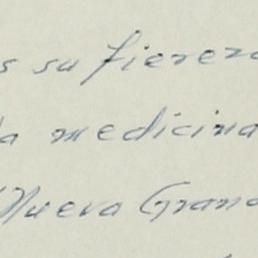 s su fiereza
la medicina
Nueva Grana